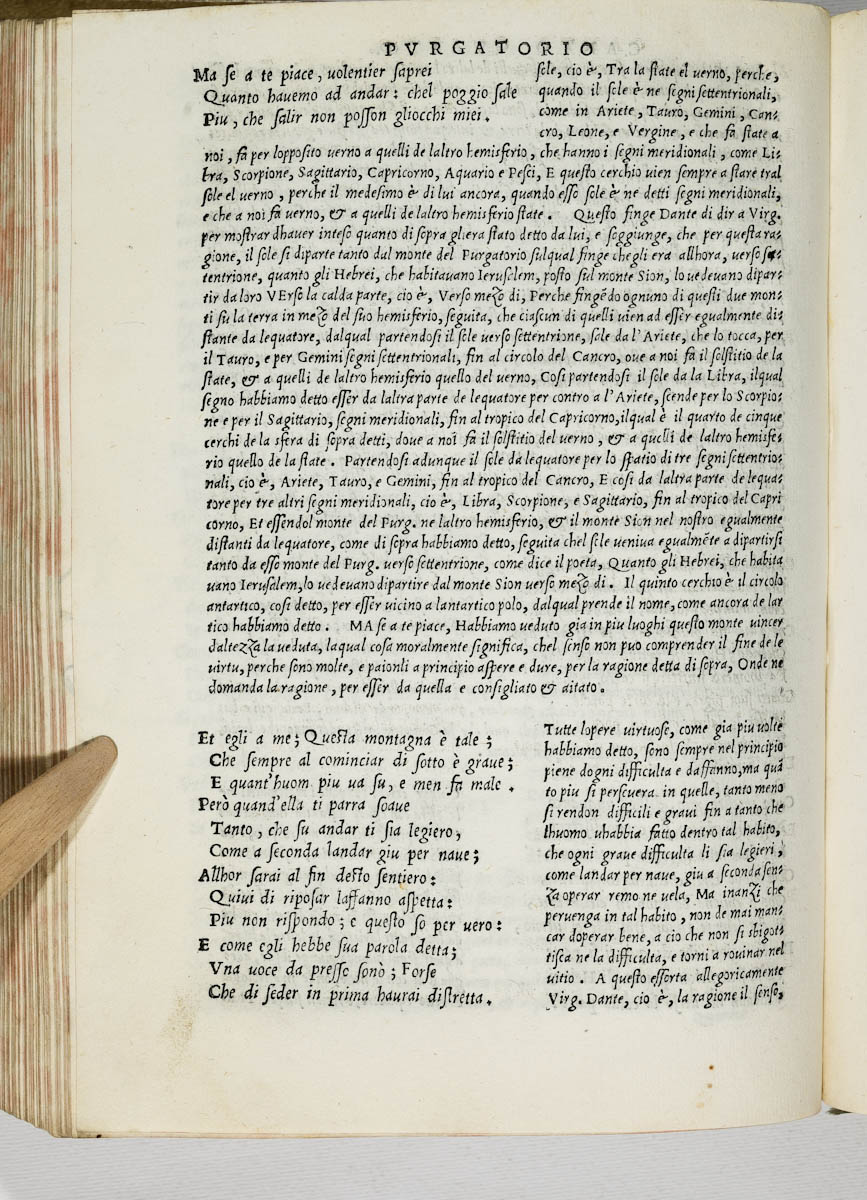 PVRGATORIO
Ma se a te piace, uolentier saprei
Quanto hauemo ad andar: chel poggio sale
Piu, che salir non posson gliocchi miei.
sole, cio è, Tra la state el verno, perche,
quando il sole è ne segni settentrionali,
come in Ariete, Tauro, Gemini, Can-
cro, Leone, e Vergine, e che fa state a
noi, fa per lopposito verno a quelli de laltro hemisferio, che hanno i segni meridionali, come Li-
bra, Scorpione, Sagittario, Capricorno, Aquario e Pesci, E questo cerchio vien sempre a stare tral
sole el verno, perche il medesimo è di lui ancora, quando esso sole è ne detti segni meridionali,
e che a noi fa verno, & a quelli de laltro hemisferio state. Questo finge Dante di dir a Virg.
per mostrar dhauer inteso quanto di sopra gliera stato detto da lui, e soggiunge, che per questa ra-
gione, il sole si diparte tanto dal monte del Purgatorio sulqual finge chegli era allhora, verso set-
tentrione, quanto gli Hebrei, che habitauano Ierusalem, posto sul monte Sion, lo uedeuano dipar-
tir da loro VErso la calda parte, cio è, Verso mezo di, Perche fingēdo ognuno di questi due mon-
ti su la terra in mezo del suo hemisferio, seguita, che ciascun di quelli vien ad esser egualmente di-
stante da lequatore, dalqual partendosi il sole verso settentrione, sale da l'Ariete, che lo tocca, per
il Tauro, e per Gemini segni settentrionali, fin al circolo del Cancro, oue a noi fa il solstitio de la
state, & a quelli de laltro hemisferio quello del verno, Cosi partendosi il sole da la Libra, ilqual
segno habbiamo detto esser da laltra parte de lequatore per contro a l'Ariete, scende per lo Scorpio-
ne e per il Sagittario, segni meridionali, fin al tropico del Capricorno, ilqual è il quarto de cinque
cerchi de la sfera di sopra detti, doue a noi fa il solstitio del verno, & a quelli de laltro hemisfe-
rio quello de la state. Partendosi adunque il sole da lequatore per lo spatio di tre segni settentrio-
nali, cio è, Ariete, Tauro, e Gemini, fin al tropico del Cancro, E cosi da laltra parte de lequa-
tore per tre altri segni meridionali, cio è, Libra, Scorpione, e Sagittario, fin al tropico del Capri
corno, Et essendol monte del Purg. ne laltro hemisferio, & il monte Sion nel nostro egualmente
distanti da lequatore, come di sopra habbiamo detto, seguita chel sole veniua egualmēte a dipartirsi
tanto da esso monte del Purg. verso settentrione, come dice il poeta, Quanto gli Hebrei, che habita
uano Ierusalem, lo uedeuano dipartire dal monte Sion verso mezo di. Il quinto cerchio è il circolo
antartico, cosi detto, per esser vicino a lantartico polo, dalqual prende il nome, come ancora de lar
tico habbiamo detto. MA se a te piace, Habbiamo veduto gia in piu luoghi questo monte vincer
daltezza la veduta, laqual cosa moralmente significa, chel senso non puo comprender il fine de le
virtu, perche sono molte, e paionli a principio aspere e dure, per la ragione detta di sopra, Onde ne
domanda la ragione, per esser da quella e consigliato & aitato.
Et egli a me; Questa montagna è tale;
Che sempre al cominciar di sotto è graue;
E quant'huom piu ua su, e men fa male.
Però quand'ella ti parra soaue
Tanto, che su andar ti sia legiero,
Come a seconda landar giu per naue;
Allhor sarai al fin desto sentiero:
Quiui di riposar laffanno aspetta:
Piu non rispondo; e questo so per uero:
E come egli hebbe sua parola detta;
Vna uoce da presso sonò; Forse
Che di seder in prima haurai distretta.
Tutte lopere uirtuose, come gia piu uolte
habbiamo detto, sono sempre nel principio
piene dogni difficulta e daffanno, ma quā
to piu si perseuera in quelle, tanto meno
si rendon difficili e graui fin a tanto che
lhuomo uhabbia fatto dentro tal habito,
che ogni graue difficulta li sia legieri,
come landar per naue, giu a seconda sen-
za operar remo ne uela, Ma inanzi che
peruenga in tal habito, non de mai man-
car doperar bene, a cio che non si sbigot-
tisca ne la difficulta, e torni a rouinar nel
uitio. A questo essorta allegoricamente
Virg. Dante, cio è, la ragione il senso,